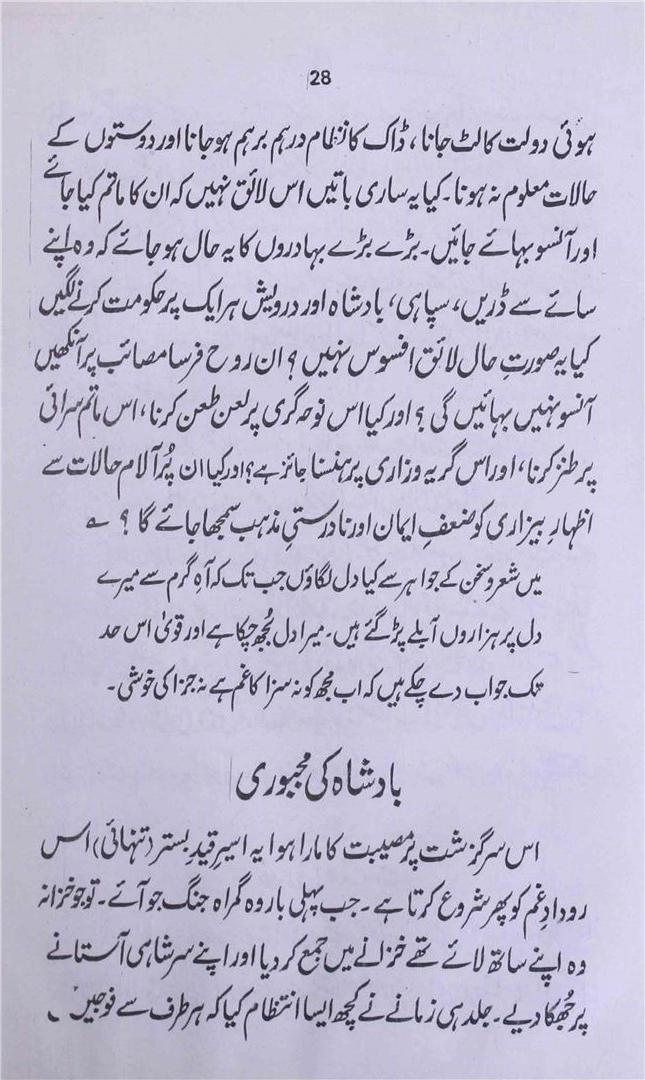 28
ہوئی دولت کا لٹ جانا، ڈاک کا نظام درہم برہم ہوجانا اور دوستوں کے
حالات معلوم نہ ہونا۔ کیا یہ ساری باتیں اس لائق نہیں کہ ان کا ماتم کیا جائے
اور آنسو بہائے جائیں۔ بڑے بڑے بہادروں کا یہ حال ہو جائے کہ وہ اپنے
سائے سے ڈریں، سپاہی، بادشاہ اور درویش ہر ایک پر حکومت کرنے لگیں
کیا یہ صورتِ حال لائق افسوس نہیں؟ ان روح فرسا مصائب پر آنکھیں
آنسو نہیں بہائیں گی؟ اور کیا اس نوحہ گری پر لعن طعن کرنا، اس ماتم سرائی
پر طنز کرنا، اور اس گریہ وزاری پر ہنسنا جائز ہے؟ اور کیا ان پُر آلام حالات سے
اظہارِ بیزاری کو ضعفِ ایمان اور نا درستیِ مذہب سمجھا جائے گا؟ ؎
میں شعر و سخن کے جواہر سے کیا دل لگاؤں جب تک کہ آہِ گرم سے میرے
دل پر ہزاروں آبلے پڑ گئے ہیں۔ میرا دل بُجھ چکا ہے اور قویٰ اس حد
تک جواب دے چکے ہیں کہ اب مجھ کو نہ سزا کا غم ہے نہ جزا کی خوشی۔
بادشاہ کی مجبوری
اس سرگزشت پر مصیبت کا مارا ہوا یہ اسیرِ قیدِ بستر (تنہائی) اس
رودادِ غم کو پھر شروع کرتا ہے۔ جب پہلی بار وہ گمراہ جنگ جو آئے۔ تو جو خزانہ
وہ اپنے ساتھ لائے تھے خزانے میں جمع کر دیا اور اپنے سر شاہی آستانے
پر جُھکا دیے۔ جلد ہی زمانے نے کچھ ایسا انتظام کیا کہ ہر طرف سے فوجیں